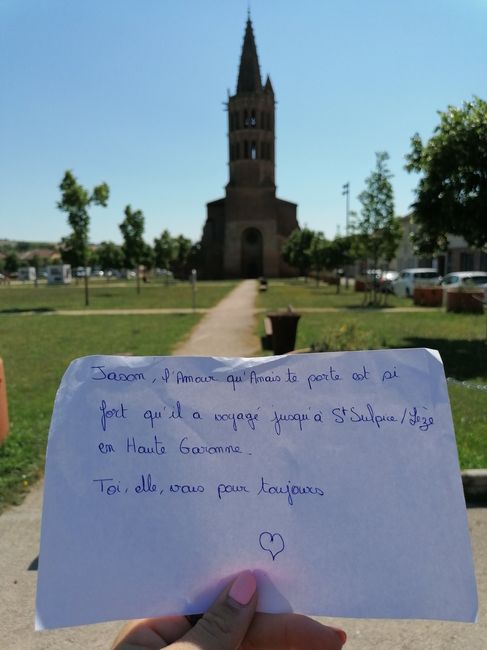 Jason, l'Amour qu'Anais te porte est si
fort qu'il a voyagé jusqu'à St Sulpice/Lèze
en Haute Garonne.
Toi, elle, vous pour toujours